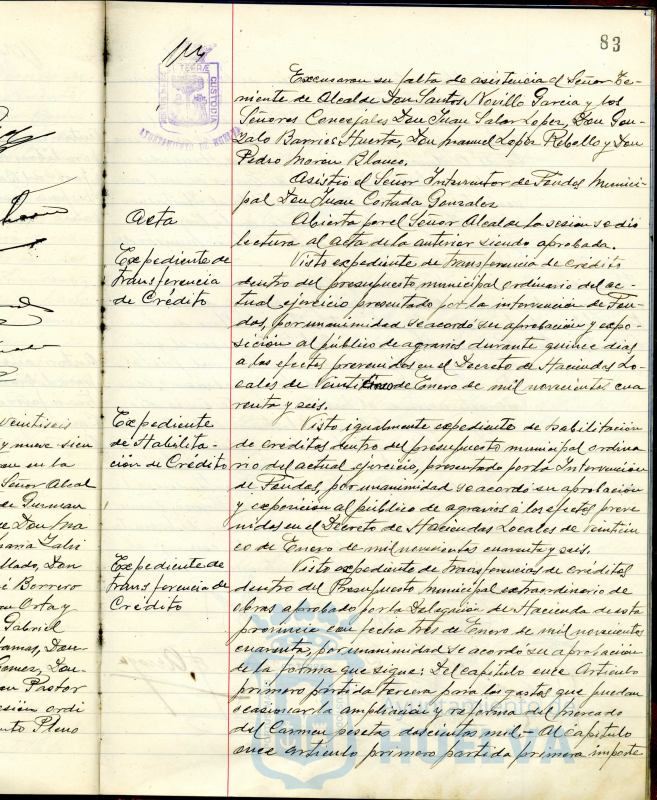 83
PORTUS MARIS ET TERRÆ CUSTODIA
AYUNTAMIENTO DE HUELVA
Excusaron su falta de asistencia el Señor Te-
niente de Alcalde Don Santos Novillo Garcia y los
Señores Concejales Don Juan Salor Lopez, Don Gon-
zalo Barrios Huerta, Don Manuel Lopez Rebollo y Don
Pedro Moron Blanco.
Asistió el Señor Interventor de Fondos Munici-
pal Don Juan Cortada Gonzalez
Acta
Abierta por el Señor Alcalde la sesion se dió
lectura al acta de la anterior siendo aprobada.
Expediente de
transferencia
de Crédito
Visto expediente de transferencia de crédito
dentro del presupuesto municipal ordinario del ac-
tual ejercicio presentado por la intervencion de Fon-
dos, por unanimidad se acordó su aprobación y expo-
sición al público de agravios durante quince dias
a los efectos prevenidos en el Decreto de Haciendas Lo-
cales de veinticinco de Enero de mil novecientos cua
renta y seis.
Expediente
de Habilita-
ción de Crédito
Visto igualmente expediente de habilitación
de créditos dentro del presupuesto municipal ordina
rio del actual ejercicio, presentado por la Intervención
de Fondos, por unanimidad se acordó su aprobación
y exposición al público de agravios á los efectos preve
nidos en el Decreto de Haciendas Locales de veinticin
co de Enero de mil novecientos cuarenta y seis.
Expediente de
transferencia de
Crédito
Visto expediente de transferencias de créditos
dentro del Presupuesto municipal extraordinario de
obras aprobado por la Delegación de Hacienda de esta
provincia con fecha tres de Enero de mil novecientos
cuarenta, por unanimidad se acordó su aprobación
de la forma que sigue: Del capitulo once Articulo
primero partida tercera para los gastos que puedan
ocasionar la ampliacion y reforma del Mercado
del Carmen pesetas doscientas mil.- Al capitulo
once articulo primero partida primera importe
veintiseis
y nueve sien
on en la
Señor Alcal
de Guzman
Don Ma
llado, Don
é Borrero
Orta y
Gabriel
amas, Don
Gomez, Don
Pastor
sesión ordi
nto Pleno
Ayuntamiento de
HUELVA